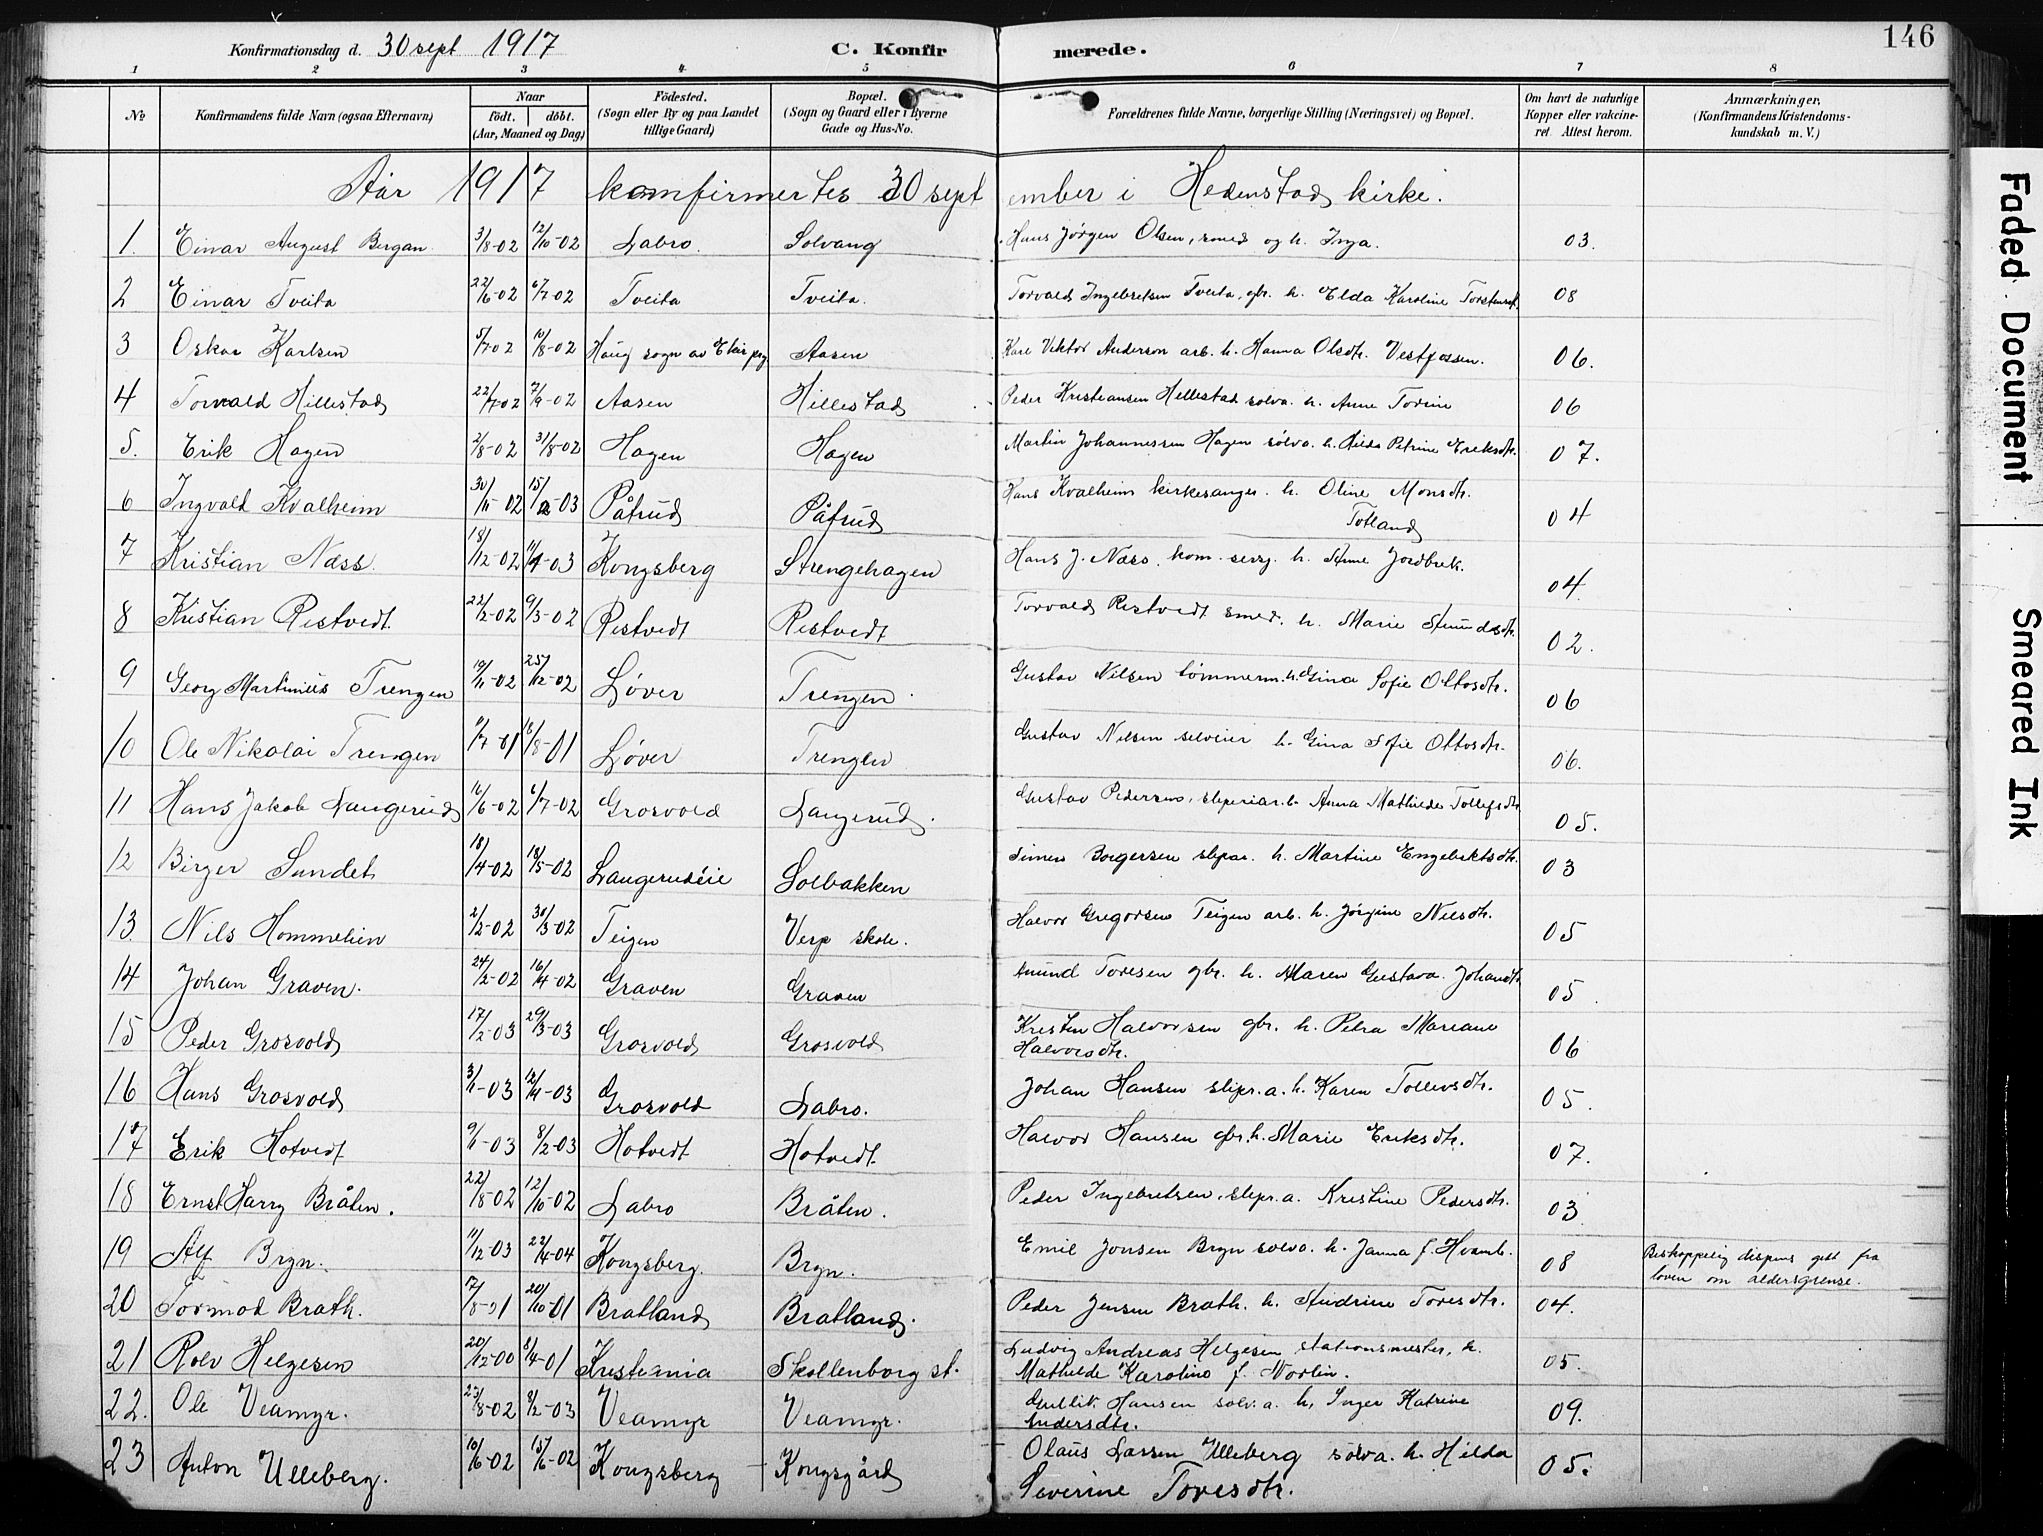 146
Konfirmationsdag d. 30 sept 1917 C. Konfirmerede.
1 2 3 4 5 6 7 8
No Konfirmandens fulde Navn (ogsaa Efternavn) Naar født. døbt. (Aar, Maaned og Dag) Fødested. (Sogn eller By og paa Landet tillige Gaard) Bopæl. (Sogn og Gaard eller i Byerne Gade og Hus-No. Forældrenes fulde Navne, borgerlige Stilling (Næringsvei) og Bopæl. Om havt de naturlige Kopper eller vakcineret. Attest herom. Anmærkninger, (Konfirmandens Kristendomskundskab m. V.)
Aar 1917 konfirmertes 30 september i Hedenstad kirke.
1. Einar August Bergan 3/8-02 12/10-02 Labro. Solvang Hans Jørgen Olsen, smed og h. Inga. 03.
2 Einar Tveita 22/6-02 6/7-02 Tveita Tveita. Torvald Ingebretsen Tveita, gbr. h. Elda Karoline 08
3 Oskar Karlsen 5/7-02 10/8-02 Haug sogn av Eker prg. Aasen Karl Viktor Anderson arb. h. Hanna Olsdtr. Vestfossen. 06.
4 Torvald Hillestad 22/7-02 7/9-02 Aasen Hillestad Peder Kristiansen Hillestad sølva. h. Anne Torine 06
5. Erik Hagen 2/8-02 31/8-02 Hagen Hagen Martin Johannessen Hagen sølva. h. Petrine Eriksdtr. 07.
6 Ingvald Kvalheim 30/11-02 15/2-03 Påfrud Påfrud Hans Kvalheim kirkesanger. h. Oline Monsdtr. Totland 04
7 Kristian Næss. 18/12-02 11/4-03 Kongsberg Strengehagen Hans J. Næss, kom. serg. h. Anne Jordbrek. 04.
8 Kristian Restvedt. 22/2-02 9/3-02 Restvedt Restvedt Torvald Restvedt smed. h. Marie Amundsdtr. 02.
9 Georg Martinius Trengen 19/11-02 25/12-02 Løver Trengen. Gustav Nilsen tømmerm. h. Gina Sofie Ottosdtr. 06
10 Ole Nikolai Trengen /7-01 18/8-01 Løver Trengen Gustav Nilsen h. Gina Sofie Ottosdtr. 06.
11 Hans Jakob Langerud 16/6-02 6/7-02 Grosvold Langerud. Gustav Pedersen, sliperiar. h. Anna Mathilde Tollefsdtr 05.
12 Birger Sundet 18/4-02 18/5-02 Langerudeie Solbakken Simen Borgersen slipar. h. Martine Engebretsdtr. 03
13. Nils Hommelien 2/2-02 30/3-02 Teigen Verp skole. Halvor Gregorsen Teigen arb. h. Jørgine Nilsdtr. 05
14 Johan Graven. 24/2-02 16/4-02 Graven Graven Amund Toresen gbr. h. Maren Gustava Johansdtr 05
15 Peder Grosvold 17/2-03 29/3-03 Grosvold Grosvold Kristen Halvorsen gbr. h. Petra Mariane Halvorsdtr. 06
16 Hans Grosvold 3/1-03 12/4-03 Grosvold Labro. Johan Hansen slipr. a. h. Karen Tollevsdtr. 05.
17 Erik Hotvedt 9/1-03 8/2-03 Hotvedt Hotvedt. Halvor Hansen gbr. h. Marie Eriksdtr. 07.
18 Ernst Harry Bråten. 22/8-02 12/10-02 Labro Bråten. Peder Ingebretsen, slipr. a. Kristine Pedersdtr. 03
19 Alf Bryn. 11/12-03 22/4-04 Kongsberg. Bryn. Emil Jonsen Bryn sølva. h. Janna f. Hvamb. 08 Biskoppelig dispens gitt fra loven om aldersgrense.
20 Tormod Brath. 17/8-01 20/10-01 Bratland Bratland. Peder Jensen Brath. h. Andrine Toresdtr. 04.
21 Rolv Helgesen 20/12-00 8/4-01 Kristiania Skollenborg st. Ludvig Andreas Helgesen stationsmester, h. Mathilde Karoline f. Norlin. 05.
22. Ole Veamyr. 23/8-02 8/2-03 Veamyr Veamyr. Gullik Hansen sølv. a. h, Inger Katrine Andersdtr. 09.
23 Anton Ulleberg. 10/6-02 15/6-02 Kongsberg Kongsgård Olaus Larsen Ulleberg sølva. h. Hilda Severine Toresdtr. 05.
Faded Document
Smeared Ink